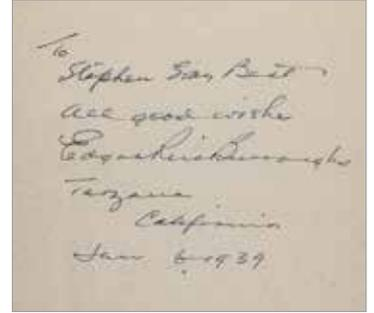 To
Stephen Gay Best
all good wishes
Edgar Rice Burroughs
Tarzana
California
Jan 6 1939